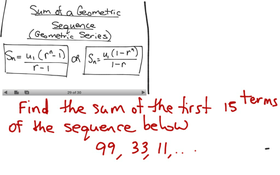 Sum of a Geometric
Sequence
(Geometric Series)
Sₙ = u₁(rⁿ-1) / r-1 or Sₙ = u₁(1-rⁿ) / 1-r
Find the sum of the first 15 terms
of the sequence below
99, 33, 11, ...